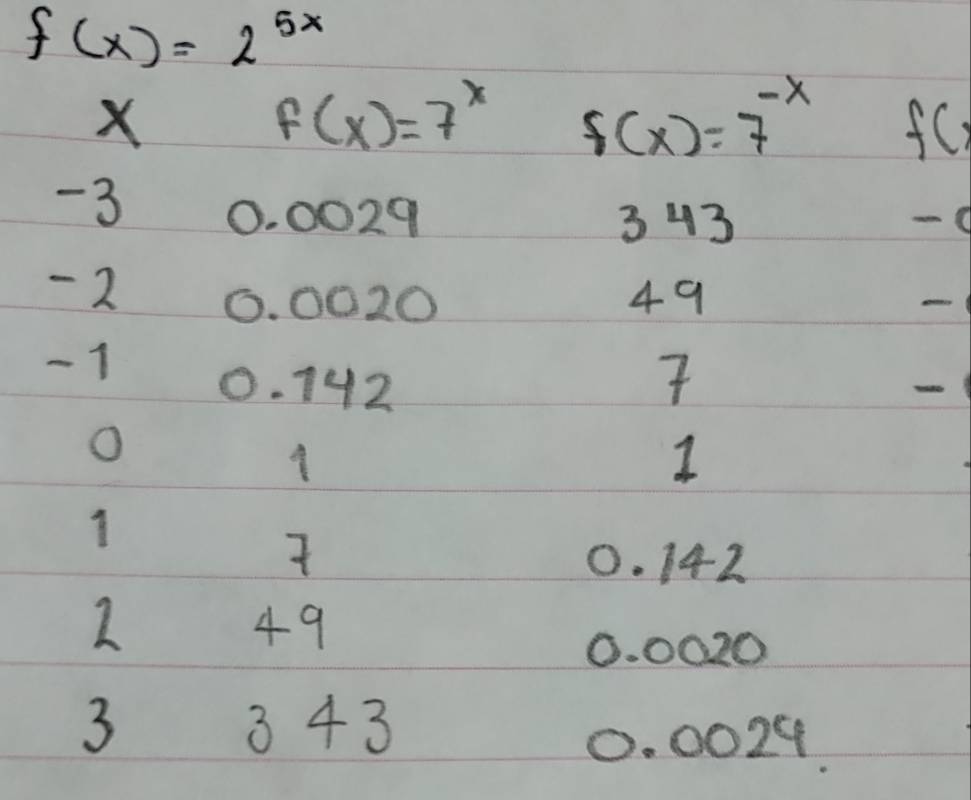 f(x) = 2^5x
x f(x)=7^x f(x)=7^-x f(
-3 0.0029 343 -
-2 0.0020 49 -
-1 0.142 7 -
0 1 1
1 7 0.142
2 49 0.0020
3 343 0.0029.